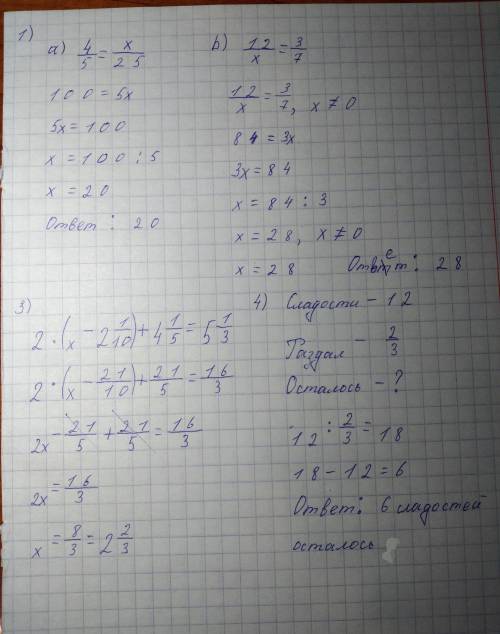 1)
a) 4/5 = x/25
100 = 5x
5x = 100
x = 100 : 5
x = 20
Ответ: 20
b) 12/x = 3/7
12/x = 3/7, x ≠ 0
84 = 3x
3x = 84
x = 84 : 3
x = 28, x ≠ 0
x = 28
Ответ: 28
3)
2 · (x − 2 1/10) + 4 1/5 = 5 1/3
2 · (x − 21/10) + 21/5 = 16/3
2x − 21/5 + 21/5 = 16/3
2x = 16/3
x = 8/3 = 2 2/3
4) Сладости − 12
Раздал − 2/3
Осталось − ?
12 : 2/3 = 18
18 − 12 = 6
Ответ: 6 сладостей
осталось